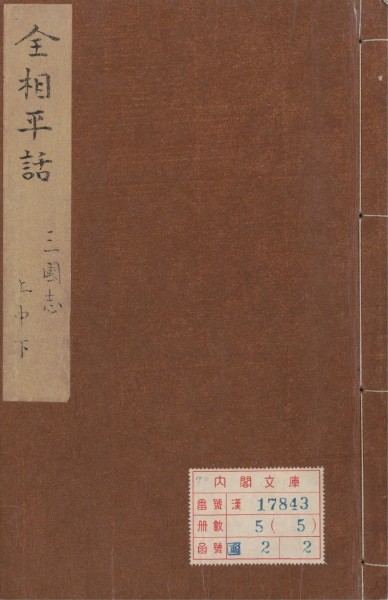 全相平話
三國志
上中下
内閣文庫
番號 漢 17843
冊數 5(5)
函號 2 2